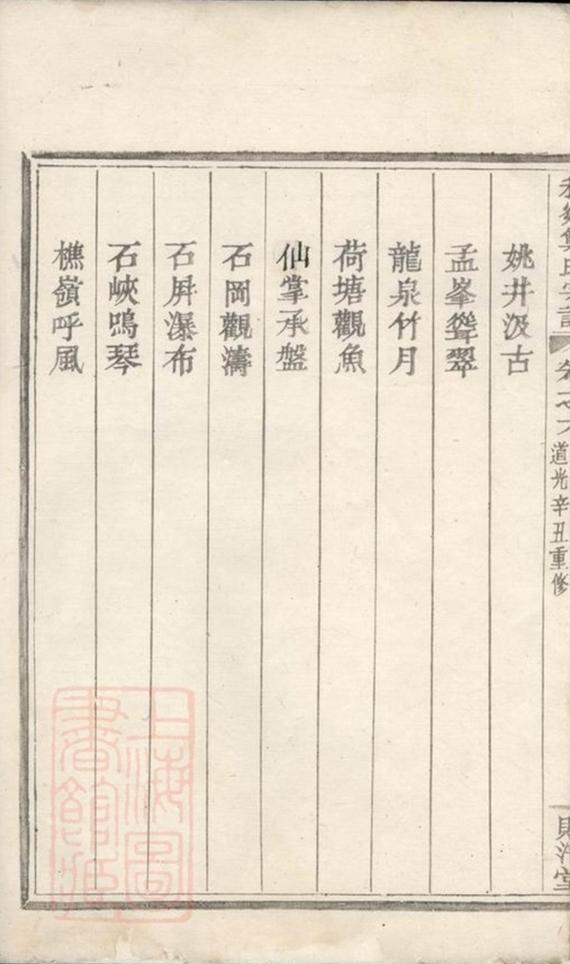 道光辛丑重修
姚井汲古
孟峯聳翠
龍泉竹月
荷塘觀魚
仙掌承盤
石岡觀濤
石屏瀑布
石峽鳴琴
樵嶺呼風
上海圖
書館藏